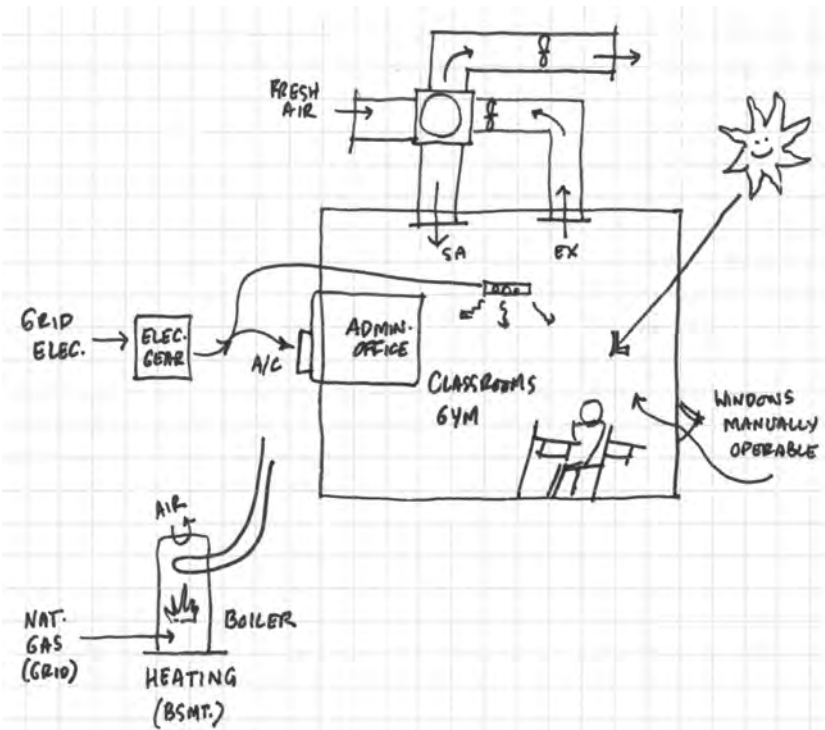 FRESH
AIR
SA
EX
GRID
ELEC.
ELEC.
GEAR
A/C
ADMIN.
OFFICE
CLASSROOMS
GYM
WINDOWS
MANUALLY
OPERABLE
AIR
NAT.
GAS
(GRID)
BOILER
HEATING
(BSMT.)